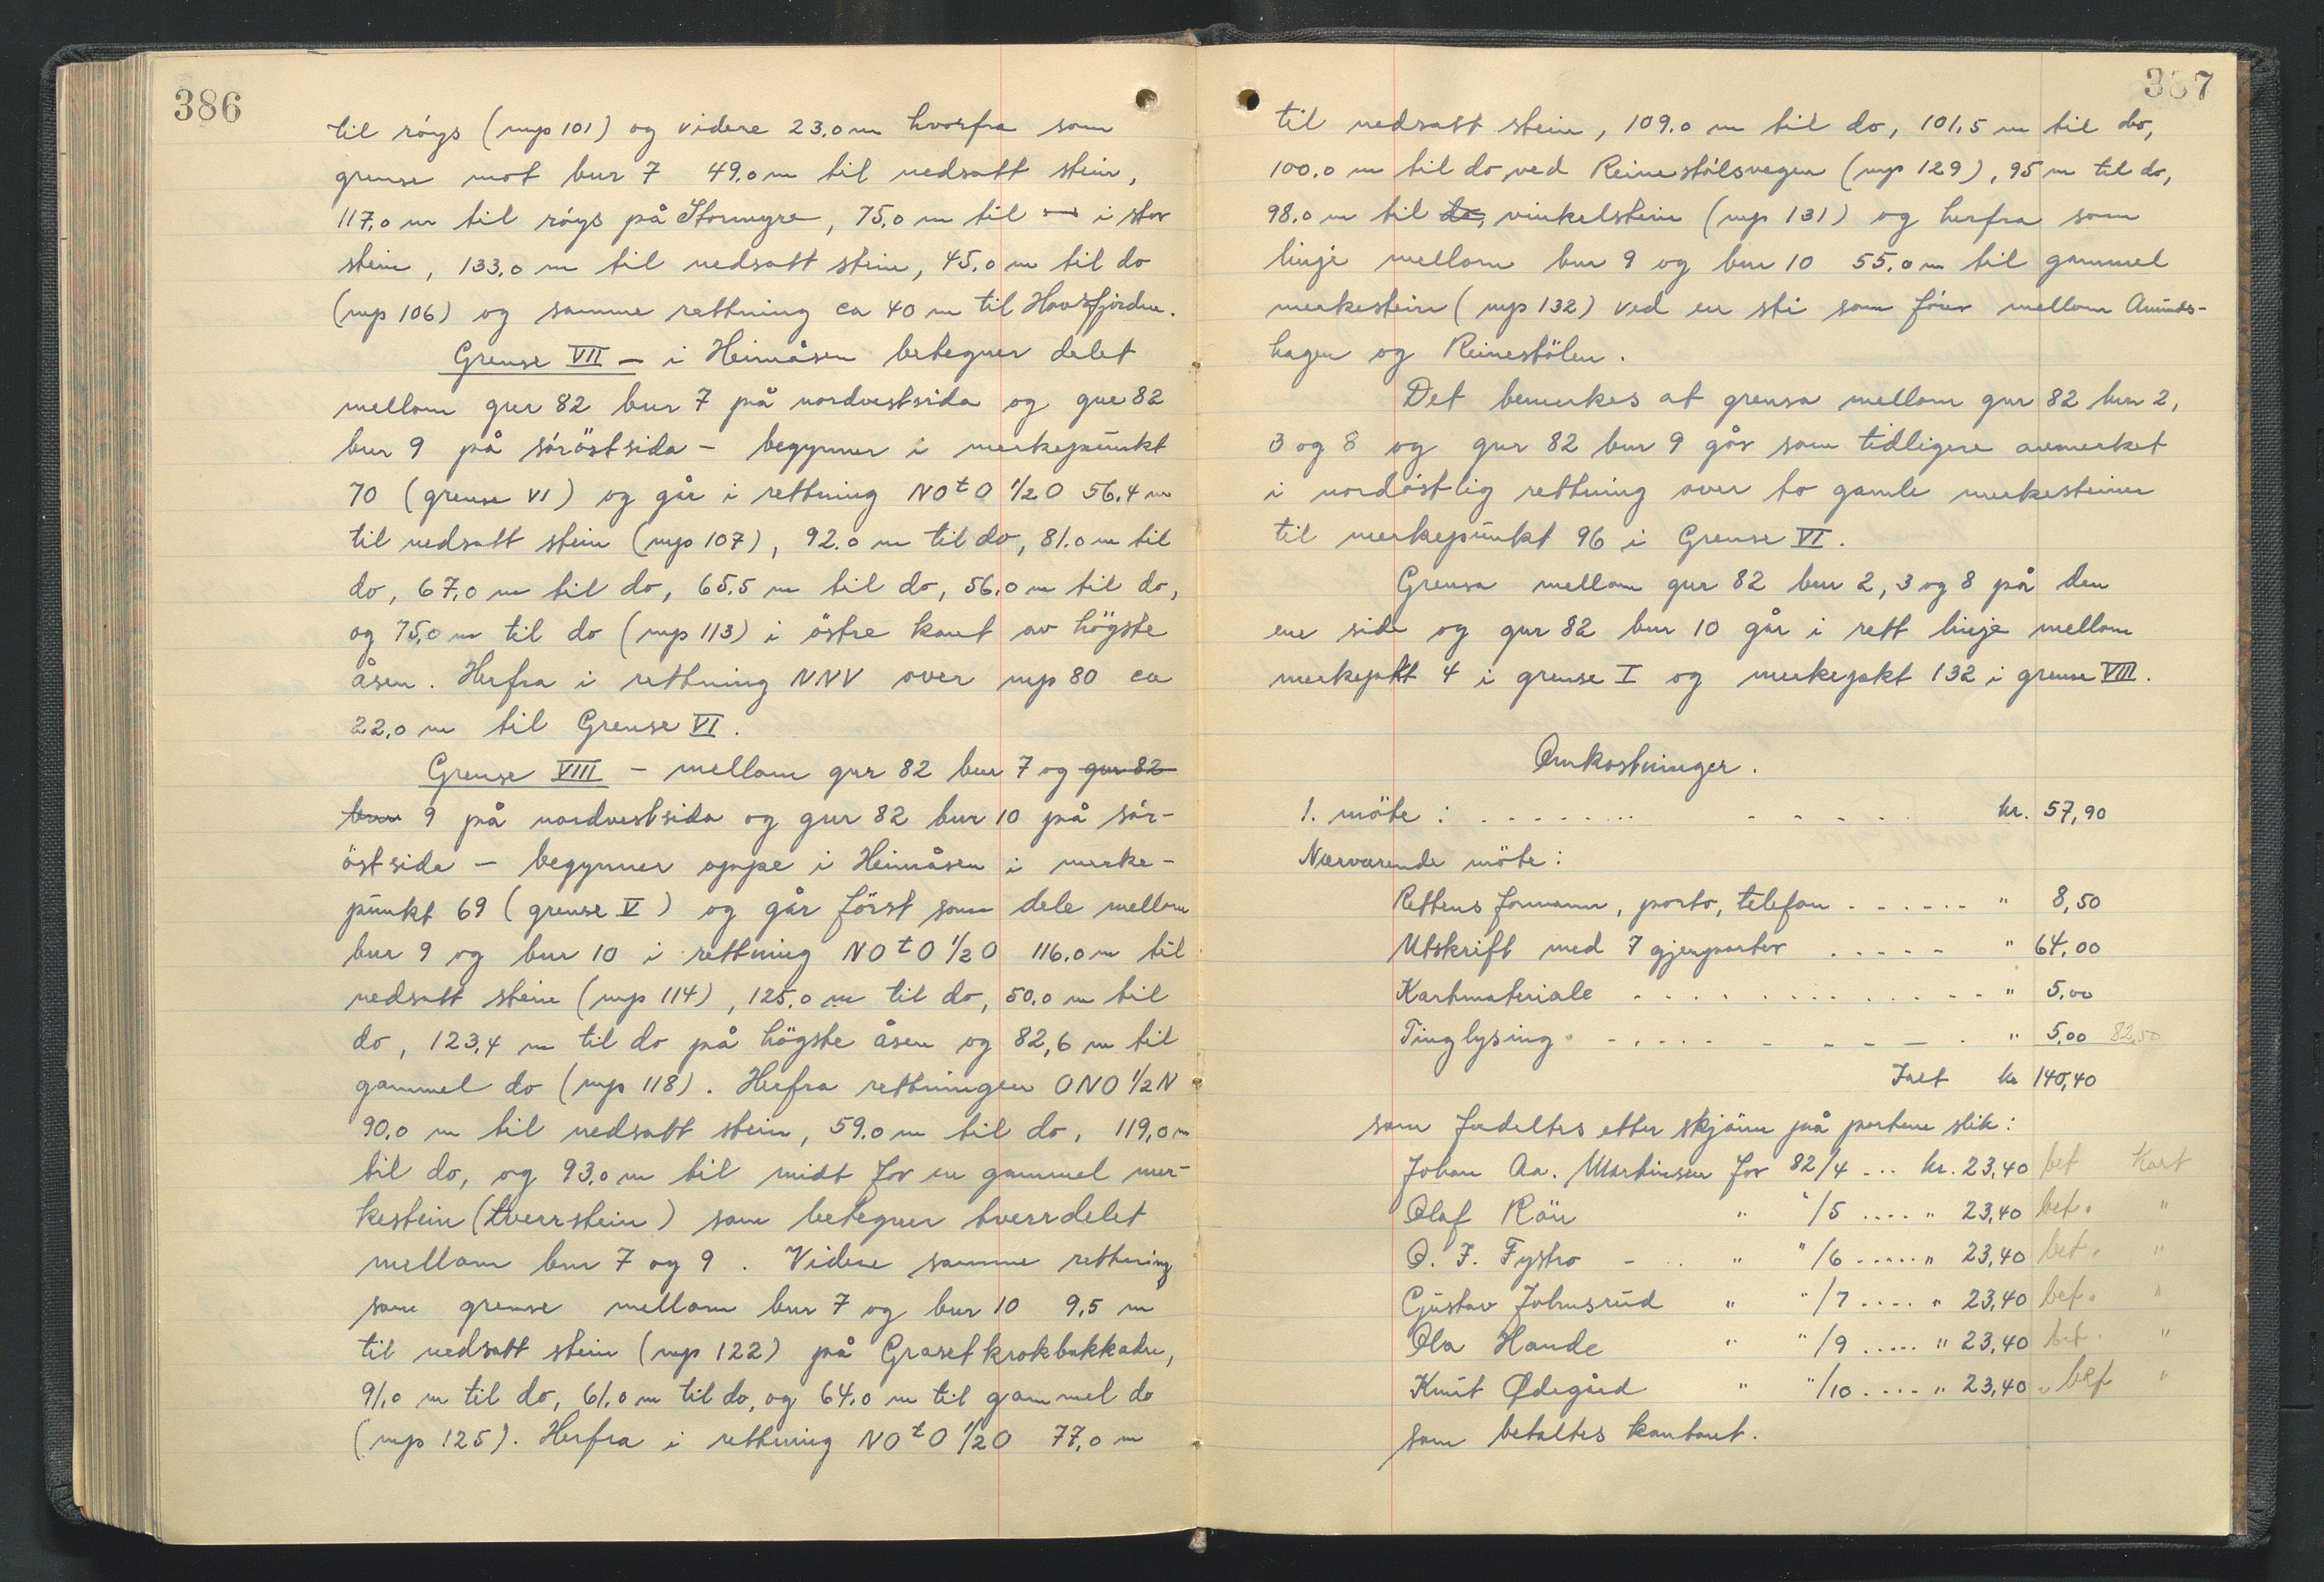 386
til röys (mp 101) og videre 23.0 m hvorfra som
grense mot bnr 7 49,0 m til nedsatt stein,
117,0 m til röys på Stormyra, 75,0 m til i stor
stein, 133,0 m til nedsatt stein, 45,0 m til do
(mp 106) og samme rettning ca 40 m til Havsfjorden.
Grense VII – i Heimåsen betegner delet
mellom gnr 82 bnr 7 på nordvestsida og gnr 82
bnr 9 på söröstsida – begynner i merkepunkt
70 (grense VI) og går i rettning NOtO 1/2 O 56,4 m
til nedsatt stein (mp 107), 92.0 m til do, 81.0 m til
do, 67,0 m til do, 65,5 m til do, 56,0 m til do,
og 75,0 m til do (mp 113) i östre kant av högste
åsen. Herfra i rettning NNV over mp 80 ca
22,0 m til Grense VI.
Grense VIII – mellom gnr 82 bnr 7 og gnr 82
bnr 9 på nordvestsida og gnr 82 bnr 10 på sör-
östsida – begynner oppe i Heimåsen i merke-
punkt 69 (grense V) og går först som dele mellom
bnr 9 og bnr 10 i rettning NOtO 1/2 O 116.0 m til
nedsatt stein (mp 114), 125,0 m til do, 50,0 m til
do, 123,4 m til do på högste åsen og 82,6 m til
gammel do (mp 118). Herfra rettningen ONO 1/2 N
90,0 m til nedsatt stein, 59,0 m til do, 119,0 m
til do, og 93,0 m til midt for en gammel mer-
kestein (tverrstein) som betegner tverrdelet
mellom bnr 7 og 9. Videre samme rettning
som grense mellom bnr 7 og bnr 10 9,5 m
til nedsatt stein (mp 122) på Grasetkrokbakkadn,
91,0 m til do, 61,0 m til do, og 64,0 m til gammel do
(mp 125). Herfra i rettning NOtO 1/2 O 77,0 m
387
til nedsatt stein, 109.0 m til do, 101,5 m til do,
100,0 m til do ved Reinestölsvegen (mp 129), 95 m til do,
98,0 m til do, vinkelstein (mp 131) og herfra som
linje mellom bnr 9 og bnr 10 55,0 m til gammel
merkestein (mp 132) ved en sti som förer mellom Amunds-
hagen og Reinestölen.
Det bemerkes at grensa mellom gnr 82 bnr 2,
3 og 8 og gnr 82 bnr 9 går som tidligere anmerket
i nordöstlig rettning over to gamle merkesteiner
til merkepunkt 96 i Grense VI.
Grensa mellom gnr 82 bnr 2, 3 og 8 på den
ene side og gnr 82 bnr 10 går i rett linje mellom
merkepkt 4 i grense I og merkepkt 132 i grense VIII.
Omkostninger.
1. möte: . . . . . . . . kr. 57,90
Nærværende möte:
Rettens formann, porto, telefon . . . . . . " 8,50
Utskrift med 7 gjenparter . . . . . " 64,00
Kartmateriale . . . . . . . . . . " 5,00
Tinglysing . . . . . . . . . " 5,00 82,50
Ialt kr 140,40
som fordeltes etter skjönn på partene slik:
Johan Aa. Martinsen for 82/4 ... kr. 23,40 bet Kart
Olaf Rön " "/5 .... " 23,40 bet. "
O. I. Fystro " "/6 ..... " 23,40 bet. "
Gustav Johnsrud " "/7 .... " 23,40 bet. "
Ola Hande " "/9 ..... " 23,40 bet. "
Knut Ødegård " "/10 .... " 23,40 " bet "
som betaltes kontant.